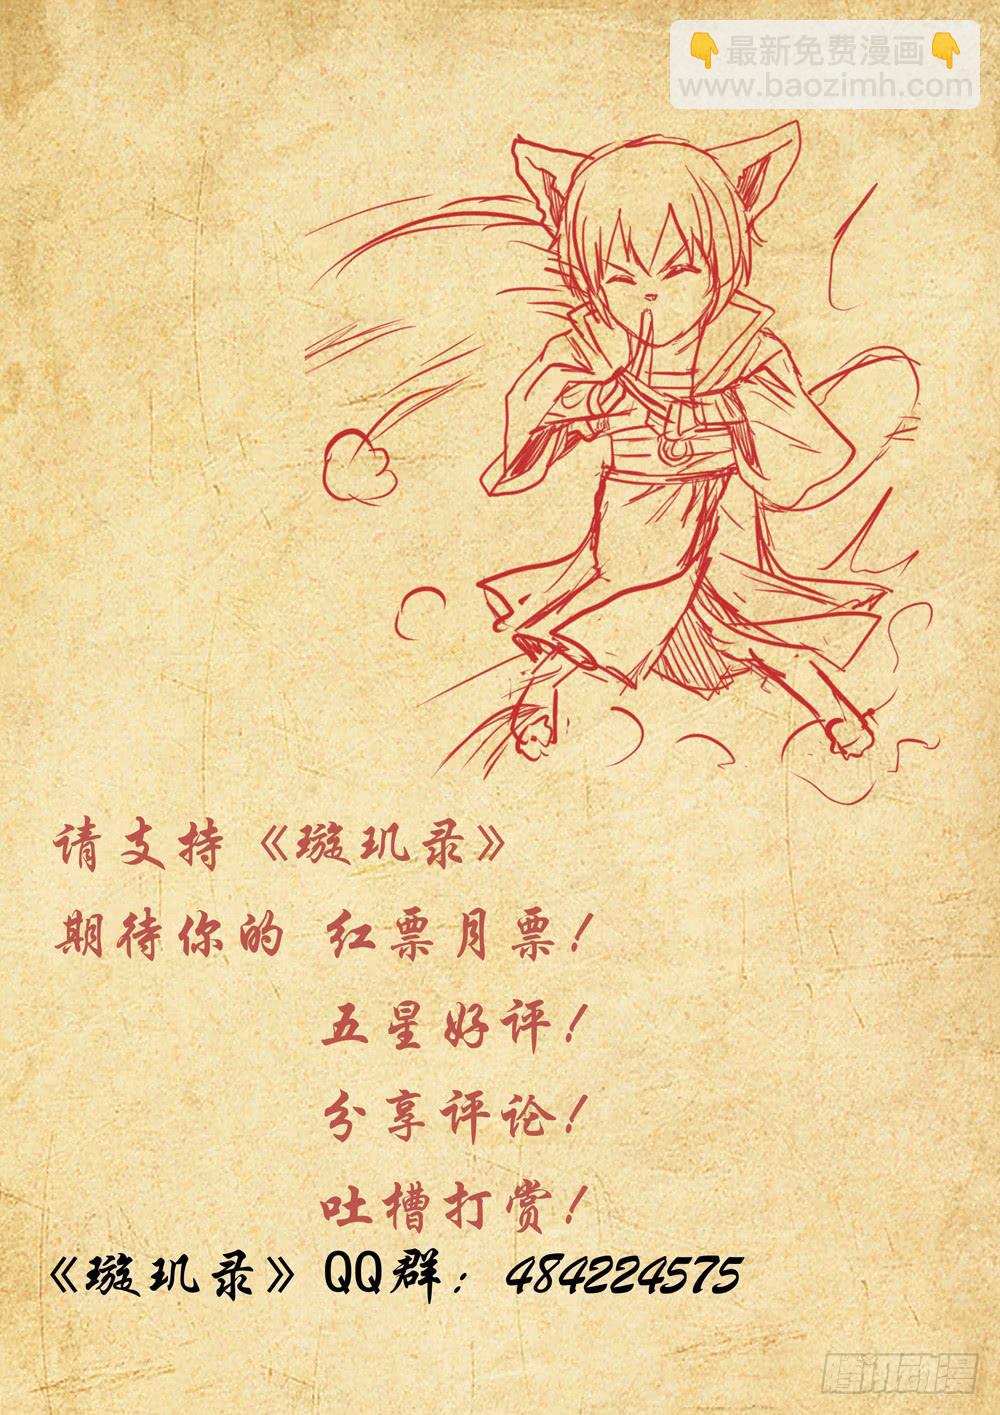 👇最新免费漫画👇
www.baozimh.com
请支持《璇玑录》
期待你的 红票月票！
五星好评！
分享评论！
吐槽打赏！
《璇玑录》QQ群：484224575
腾讯动漫